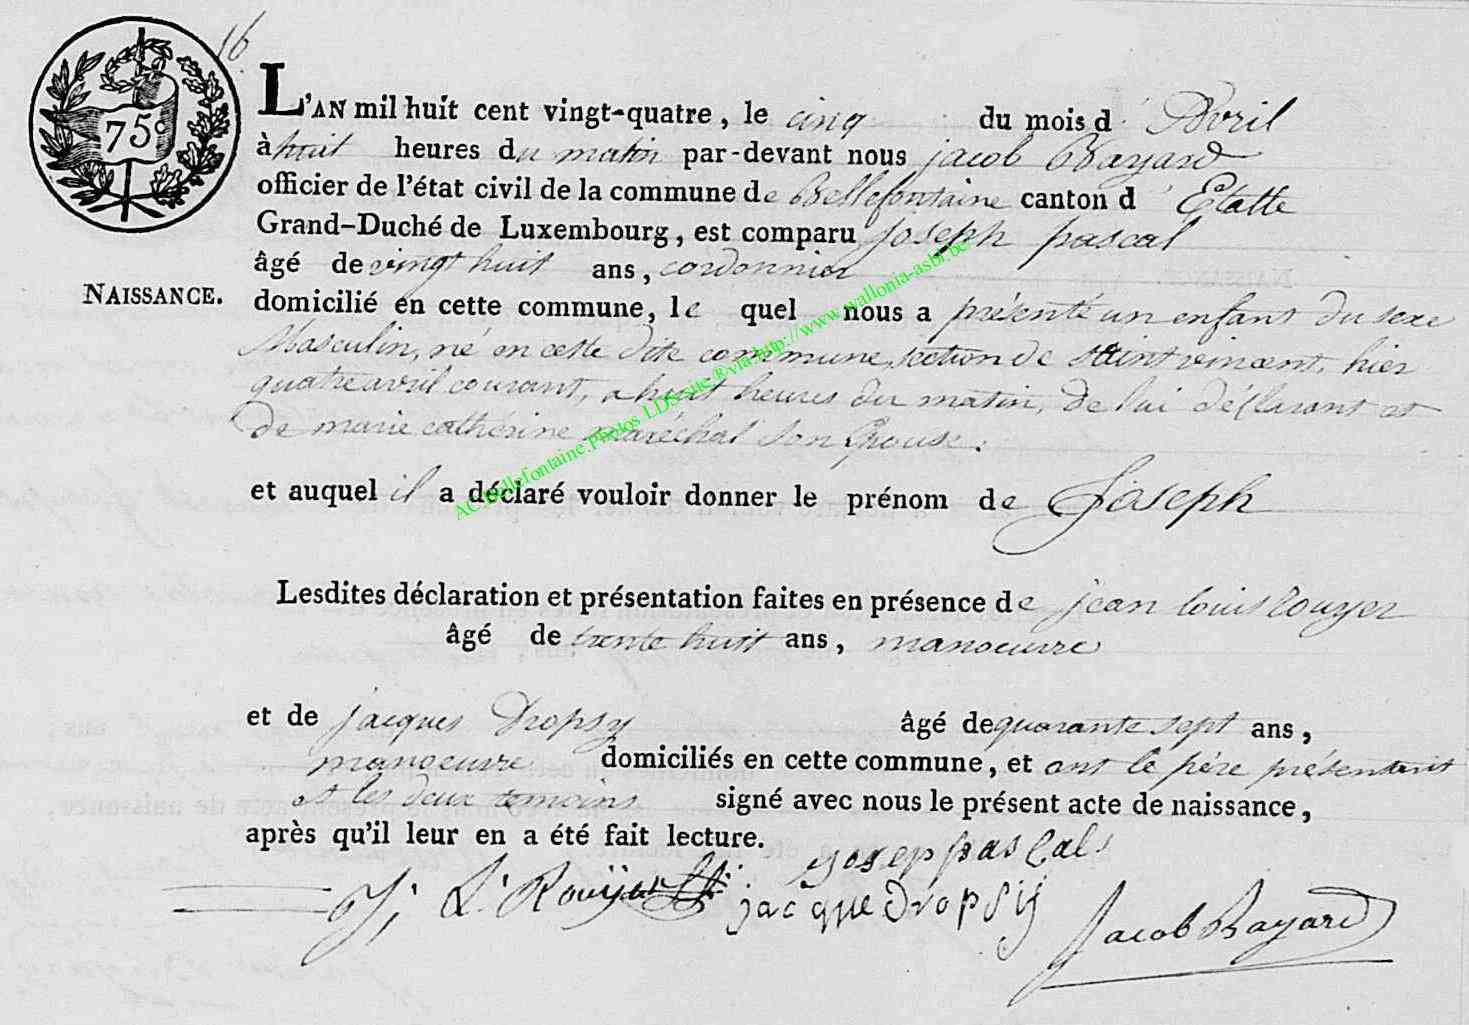 16
75c
L'AN mil huit cent vingt-quatre, le cinq du mois d'Avril
à huit heures du matin par-devant nous jacob Bayard
officier de l'état civil de la commune de Bellefontaine canton d'Etalle
Grand-Duché de Luxembourg, est comparu joseph pascal
âgé de vingt huit ans, cordonnier
NAISSANCE.
domicilié en cette commune, le quel nous a présenté un enfant du sexe
Masculin, né en cette dite commune, section de Saint vincent, hier
quatre avril courant, a huit heures du matin, de lui déclarant et
de marie cathérine maréchal son Epouse.
et auquel il a déclaré vouloir donner le prénom de Joseph
Lesdites déclaration et présentation faites en présence de jean louis rouyer
âgé de trente huit ans, manoeuvre
et de jacques Dropsy âgé de quarante sept ans,
manoeuvre domiciliés en cette commune, et ont le père présentant
et les deux temoins signé avec nous le présent acte de naissance,
après qu'il leur en a été fait lecture.
yosep pascals
J. L. Rouyer
jacque Dropsy
Jacob Bayard
AC Bellefontaine.Photos LDS site ® via http://www.wallonia-asbl.be/